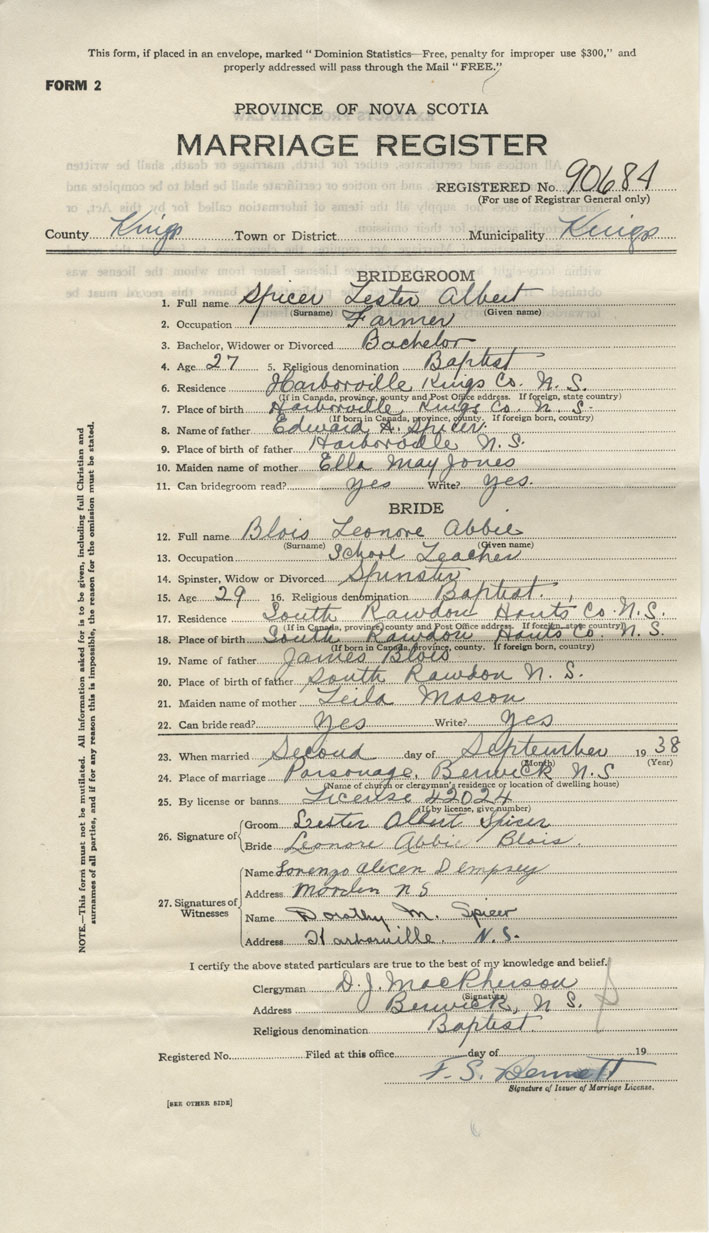 This form, if placed in an envelope, marked "Dominion Statistics—Free, penalty for improper use $300," and
properly addressed will pass through the Mail "FREE."
FORM 2
PROVINCE OF NOVA SCOTIA
MARRIAGE REGISTER
REGISTERED No. 90684
(For use of Registrar General only)
County Kings Town or District Municipality Kings
BRIDEGROOM
1. Full name Spicer Lester Albert
(Surname) (Given name)
2. Occupation Farmer
3. Bachelor, Widower or Divorced Bachelor
4. Age 27 5. Religious denomination Baptist
6. Residence Harborville Kings Co. N. S.
(If in Canada, province, county and Post Office address. If foreign, state country)
7. Place of birth Harborville Kings Co. N. S.
(If born in Canada, province, county. If foreign born, country)
8. Name of father Edward A. Spicer.
9. Place of birth of father Harborville N. S.
10. Maiden name of mother Ella May Jones
11. Can bridegroom read? yes Write? yes.
BRIDE
12. Full name Blois Leonore Abbie
(Surname) (Given name)
13. Occupation School Teacher
14. Spinster, Widow or Divorced Spinster
15. Age 29 16. Religious denomination Baptist.
17. Residence South Rawdon Hants Co. N. S.
(If in Canada, province, county and Post Office address. If foreign, state country)
18. Place of birth South Rawdon Hants Co. N. S.
(If born in Canada, province, county. If foreign born, country)
19. Name of father James Blois
20. Place of birth of father South Rawdon N. S.
21. Maiden name of mother Leila Mason
22. Can bride read? Yes Write? Yes
23. When married Second day of September 19 38
(Month) (Year)
24. Place of marriage Parsonage, Berwick N. S
(Name of church or clergyman's residence or location of dwelling house)
25. By license or banns License 42024
(If by license, give number)
26. Signature of Groom Lester Albert Spicer
Bride Leonore Abbie Blois.
27. Signatures of Witnesses
Name Lorenzo Dempsey
Address Morden N S
Name Dorothy M. Spicer
Address Harborville. N. S.
I certify the above stated particulars are true to the best of my knowledge and belief.
Clergyman D. J. MacPherson
(Signature)
Address Berwick, N. S.
Religious denomination Baptist
Registered No. Filed at this office day of 19
F. S.
Signature of Issuer of Marriage License.
[SEE OTHER SIDE]
NOTE.—This form must not be mutilated. All information asked for is to be given, including full Christian and
surnames of all parties, and if for any reason this is impossible, the reason for the omission must be stated.